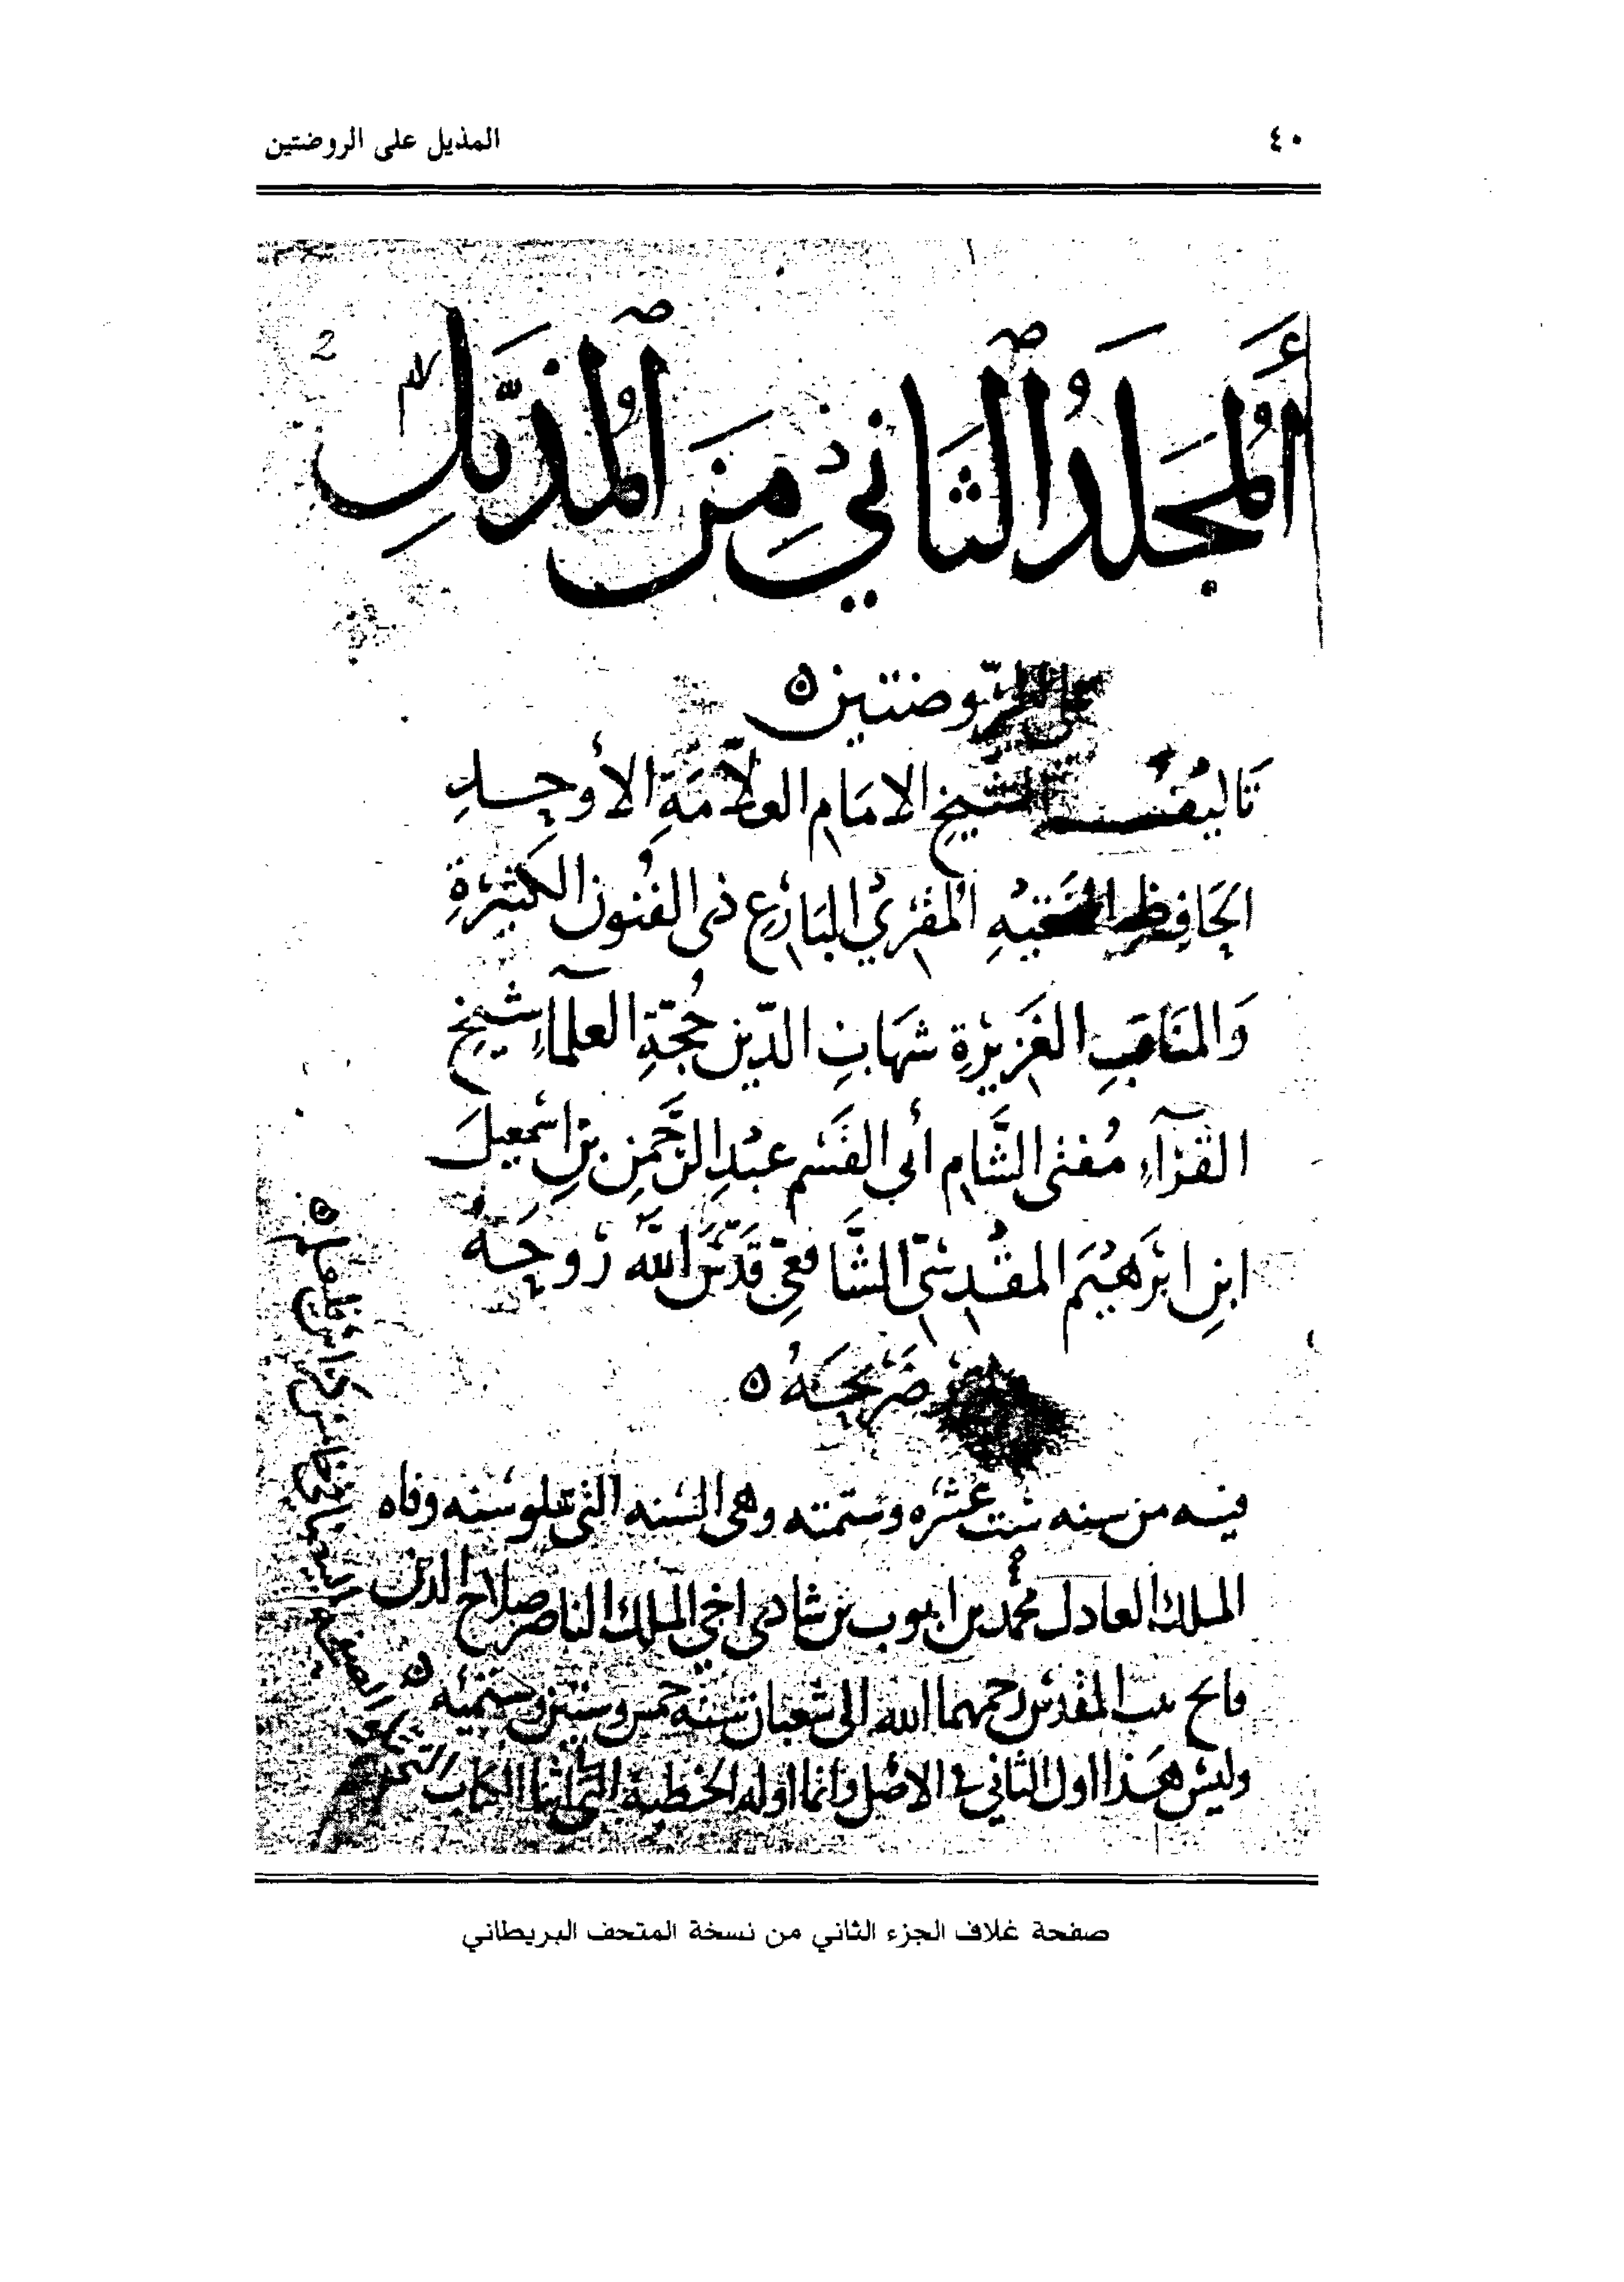 ٤٠
المذيل على الروضتين
2
أَلْمُجَلَدُ الثَّانِيْ مِنَ الْمُذَيَّلِ
على الرَّوضتين ٥
تَاليفُ الشيخ الامَامِ العَلّامَةِ الأَوحَدِ
الحَافِظِ الفَقيْهِ المُقْرِيْ البَارِعِ ذي الفُنُونِ الكَثِيْرَةِ
وَالمنَاقِبِ الغَزيْرَةِ شهَابِ الدِّين حُجّةِ العلمَآءِ شَيْخِ
القُرّآءِ مُفتى الشَّامِ أبي القَسم عَبْدِ الرَّحْمنِ بْنِ اسْمعيلَ
ابنِ ابْرَهيْمَ المقْدسيّ الشَّافعيّ قَدَّسَ اللهُ رُوحَهُ
ضَرِيحَهُ ٥
فيه من سنه ست عشره وستمئه وهي السنه التي تتلو سنه وفاه
الملك العادل محمد بن ايوب بن شادي اخي الملك الناصر صلاح الدين
فاتح بيت المقدس رحمهما الله الى شعبان سنه خمس وستين وستميه ٥
وليس هذا اول الثاني في الاصل وانما اوله الخطبة التي اثنا الكتاب
صفحة غلاف الجزء الثاني من نسخة المتحف البريطاني